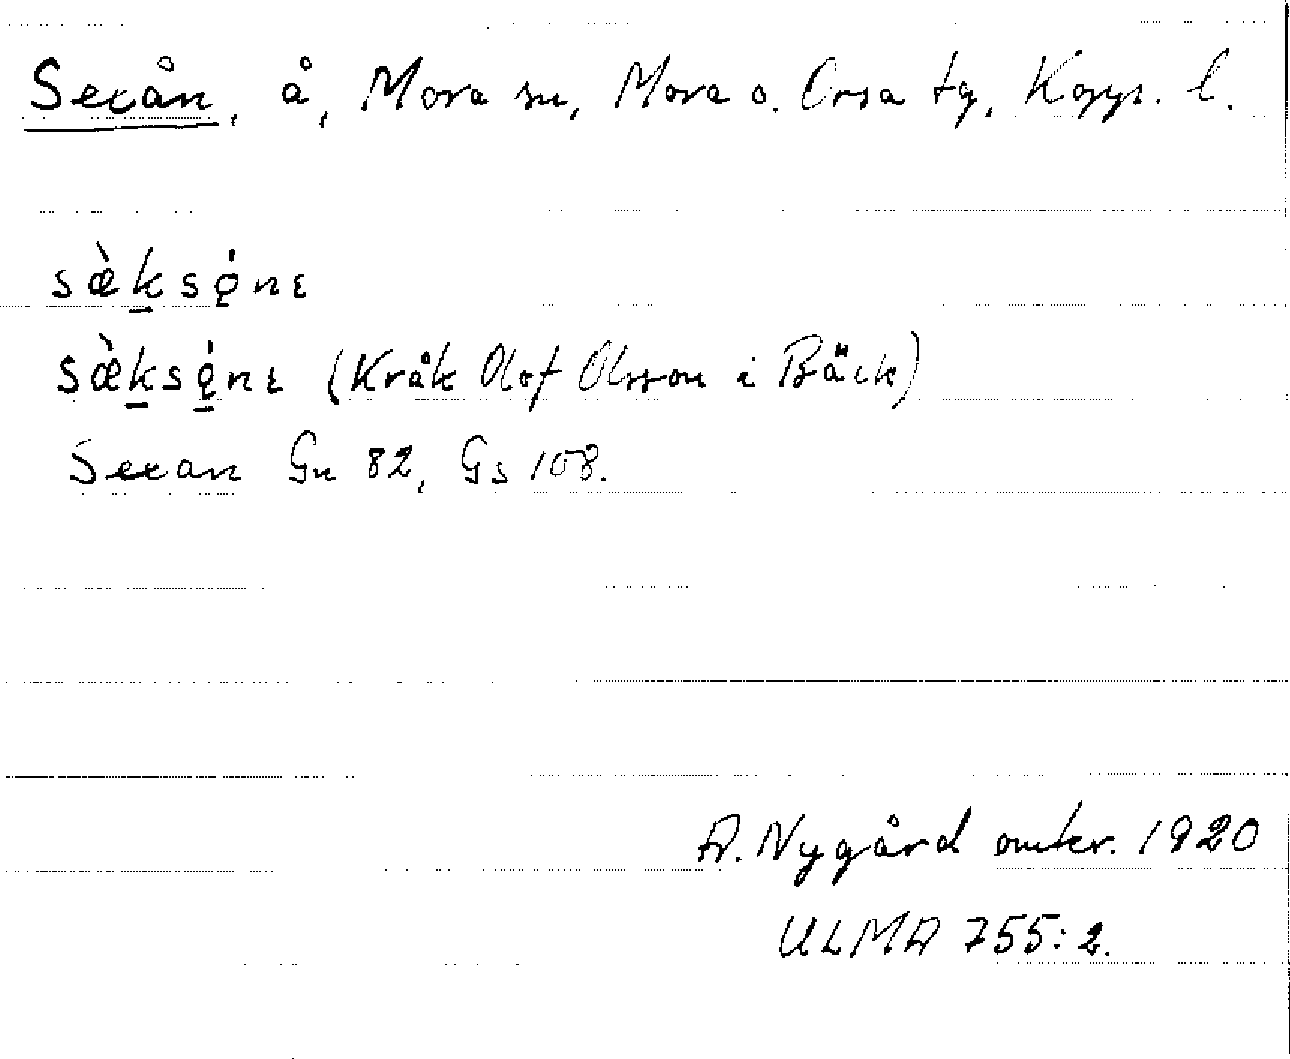 Sexån, å, Mora sn, Mora o. Orsa tg, Kopps. l.
sæ̀k̲sǫ́nɛ
sæ̀k̲sǫ̲́nɛ (Kråk Olof Olsson i Bäck)
Sexan Gn 82, Gs 108.
A. Nygård omkr. 1920
ULMA 755:2.